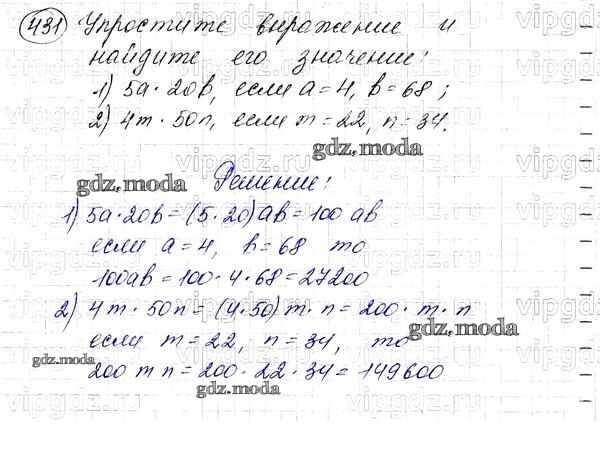 431 Упростите выражение и
найдите его значение:
1) 5a · 20b, если a = 4, b = 68 ;
2) 4m · 50n, если m = 22, n = 34.
gdz.moda
Решение:
gdz.moda
1) 5a · 20b = (5 · 20) ab = 100 ab
если a = 4, b = 68 то
100ab = 100 · 4 · 68 = 27200
2) 4m · 50n = (4 · 50) m · n = 200 · m · n
gdz.moda
если m = 22, n = 34, то
gdz.moda
200 m n = 200 · 22 · 34 = 149600
gdz.moda